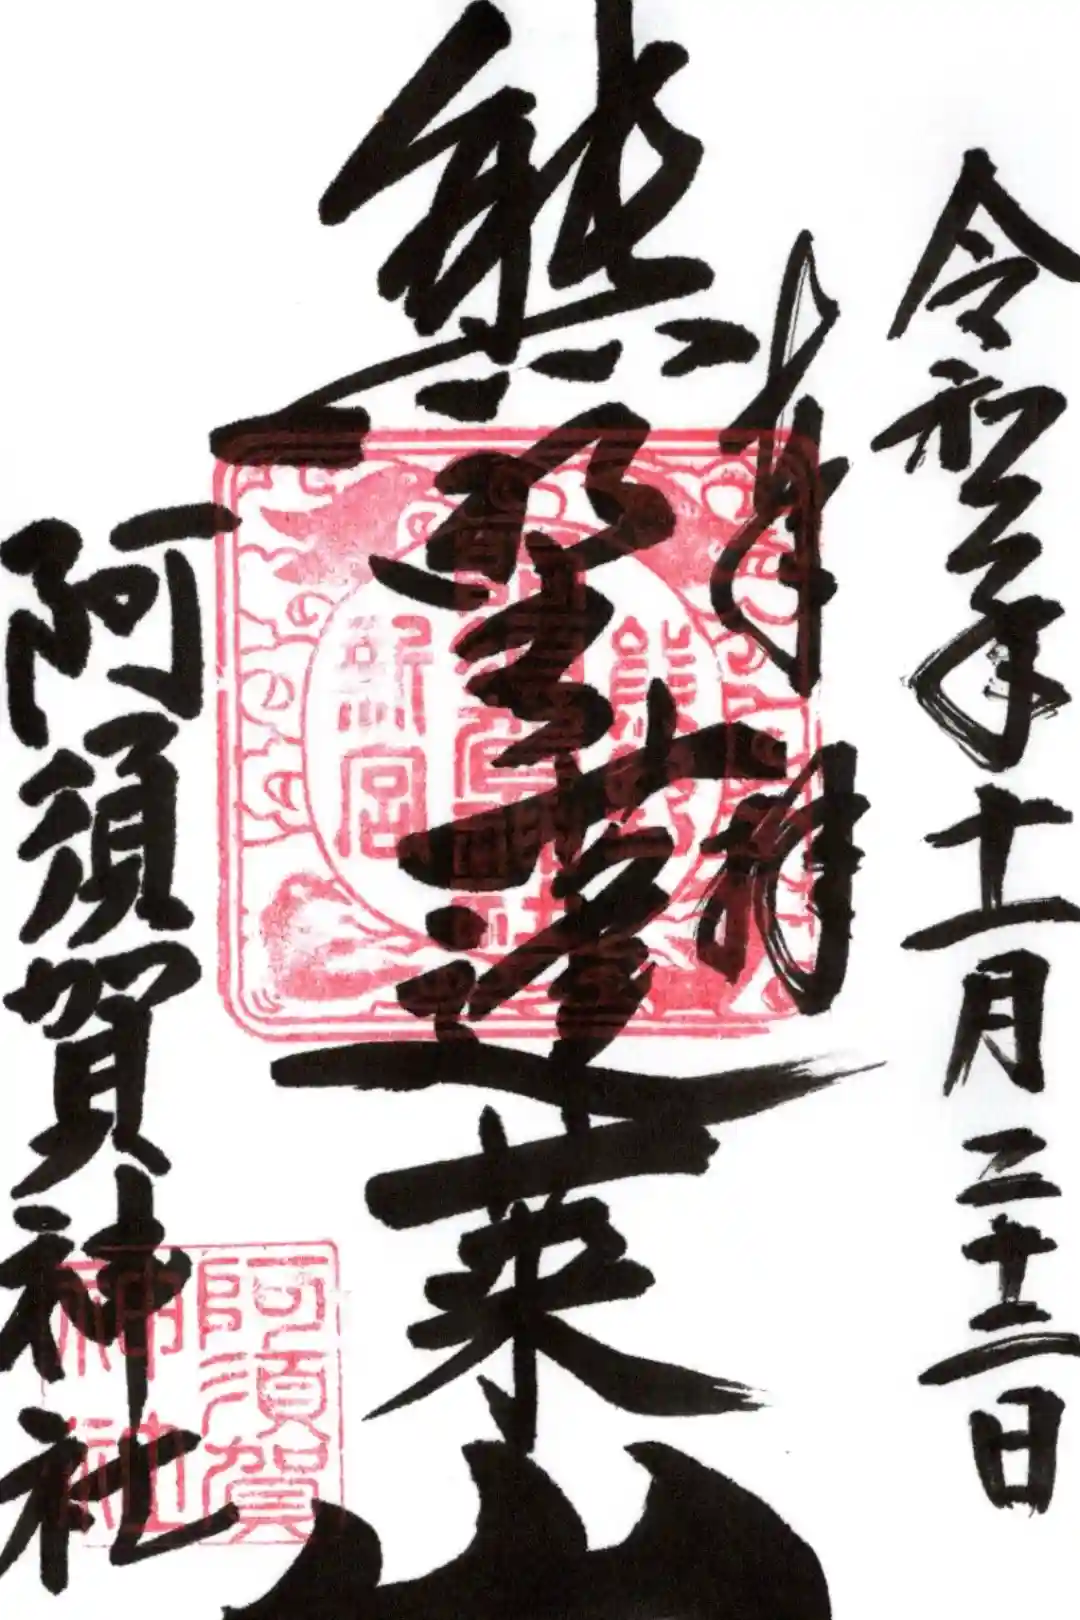 令和元年十一月二十二日
奉拝
熊野蓬莱山
阿須賀神社
熊野
新宮
阿須賀
神社